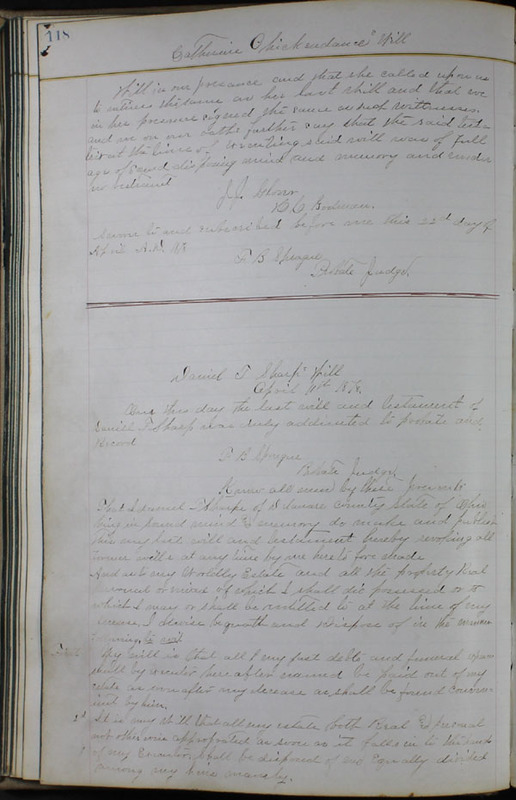 118
Catherine Chickendance's Will
Will in our presence and that she called upon us
to witness the same as her last will and that we
in her presence signed the same as such witnesses.
and we on our oaths further say that the said testa
at the time of executing said will was of full
age of sound disposing mind and memory and under
no restraint
J. J. Glover
B. C. Bowman.
Sworn to and subscribed before me this 22d day of
April A.D.
F B Sprague
Probate Judge.
Daniel T Sharp's Will
April 11th 1878.
this day the last will and testament of
Daniel T Sharp was duly admitted to probate and
Record
F B Sprague
Probate Judge
Know all men by these presents
That I Daniel T Sharpe of Delaware County State of Ohio
being in sound mind & memory do make and publish
this my last will and testament hereby revoking all
former wills at any time by me heretofore made
And as to my Worldly Estate and all the property Real
personal or mixed of which I shall die possessed or to
which I may or shall be entitled to at the time of my
decease, I devise bequeath and dispose of in the manner
following to wit
My will is that all my just debts and funeral expen
shall by executor here after named be paid out of my
estate as soon after my decease as shall be found conven
ient by him.
It is my will that all my estate both Real & personal
not otherwise appropriated as soon as it falls in to the hands
of my Executor shall be disposed of and Equally divided
among my heirs namely.